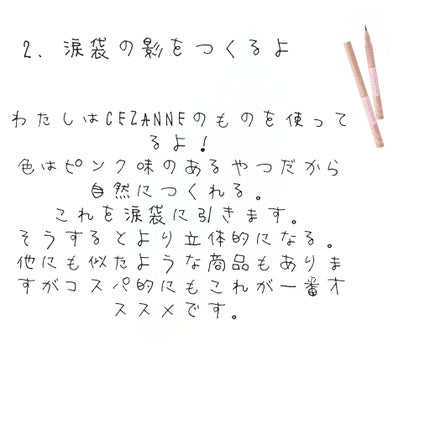 2. 涙袋の影をつくるよ
わたしはCEZANNEのものを使って
るよ!
色はピンク味のあるやつだから
自然につくれる。
これを涙袋に引きます。
そうするとより立体的になる。
他にも似たような商品もありま
すがコスパ的にもこれが一番オ
ススメです。